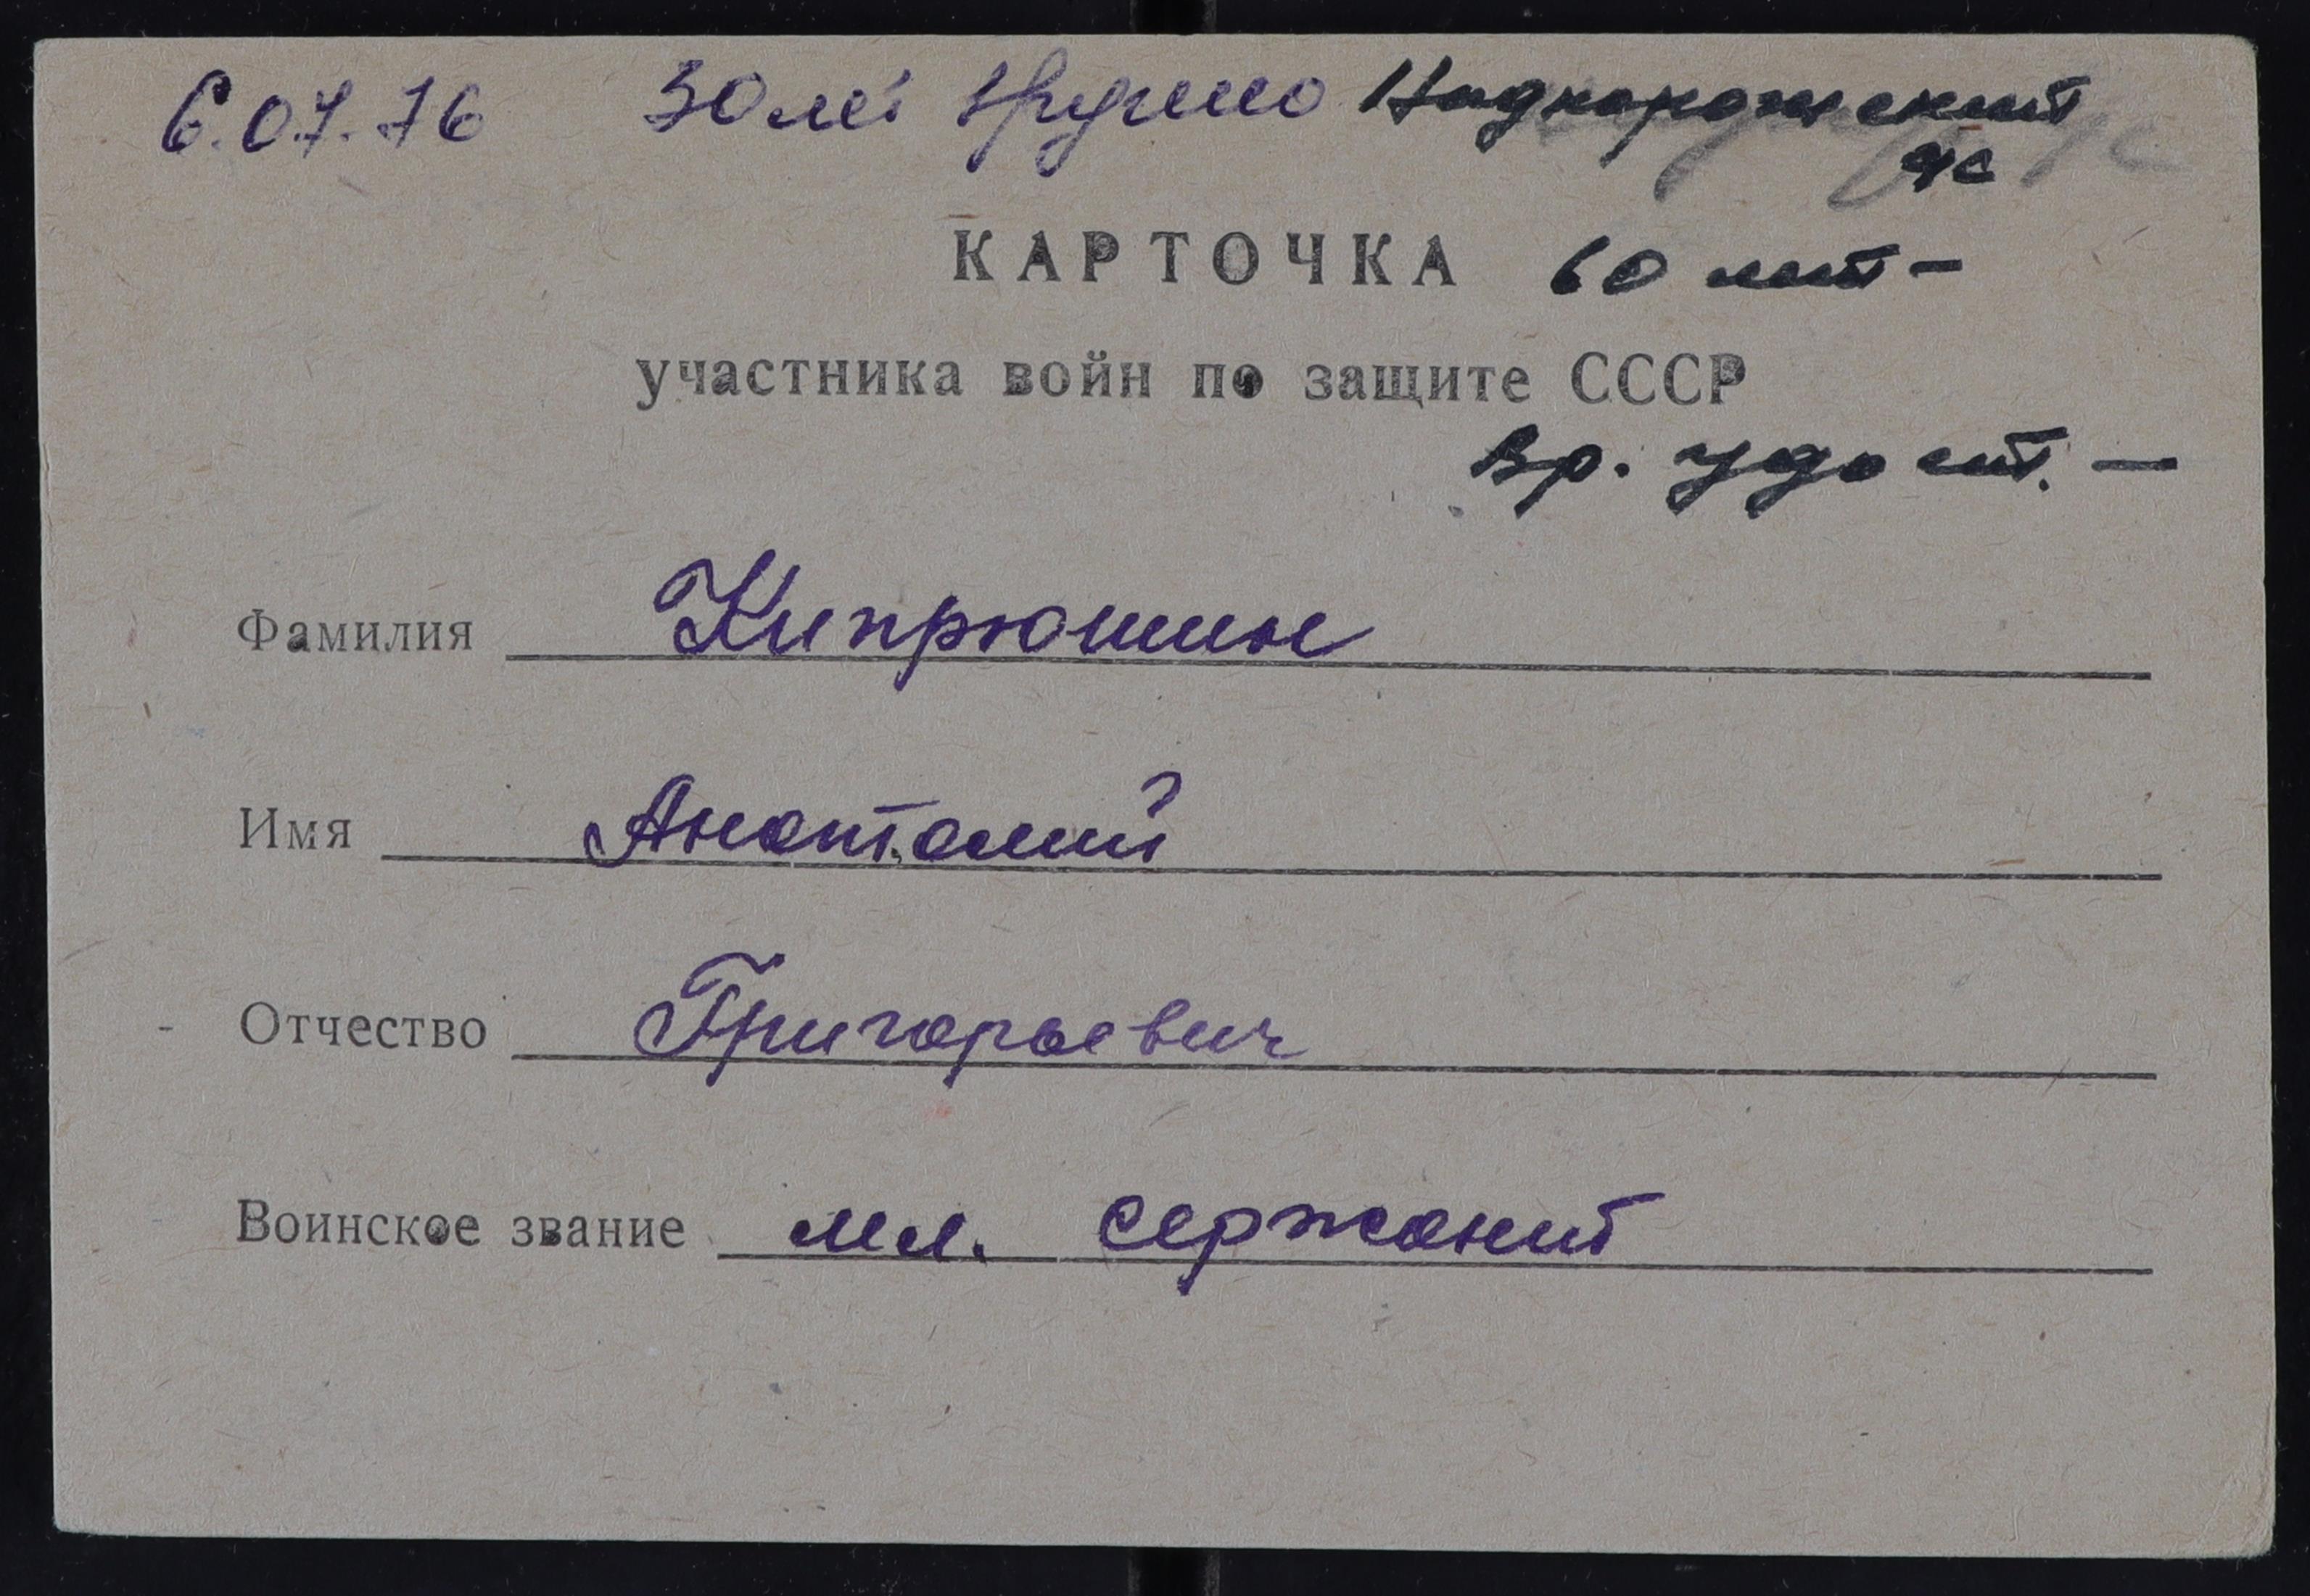 6.07.76 30 лет вручено Надпорожский
с/с
КАРТОЧКА 60 лет –
участника войн по защите СССР
Вр. удост. –
Фамилия Кипрюшин
Имя Анатолий
Отчество Григорьевич
Воинское звание мл. сержант